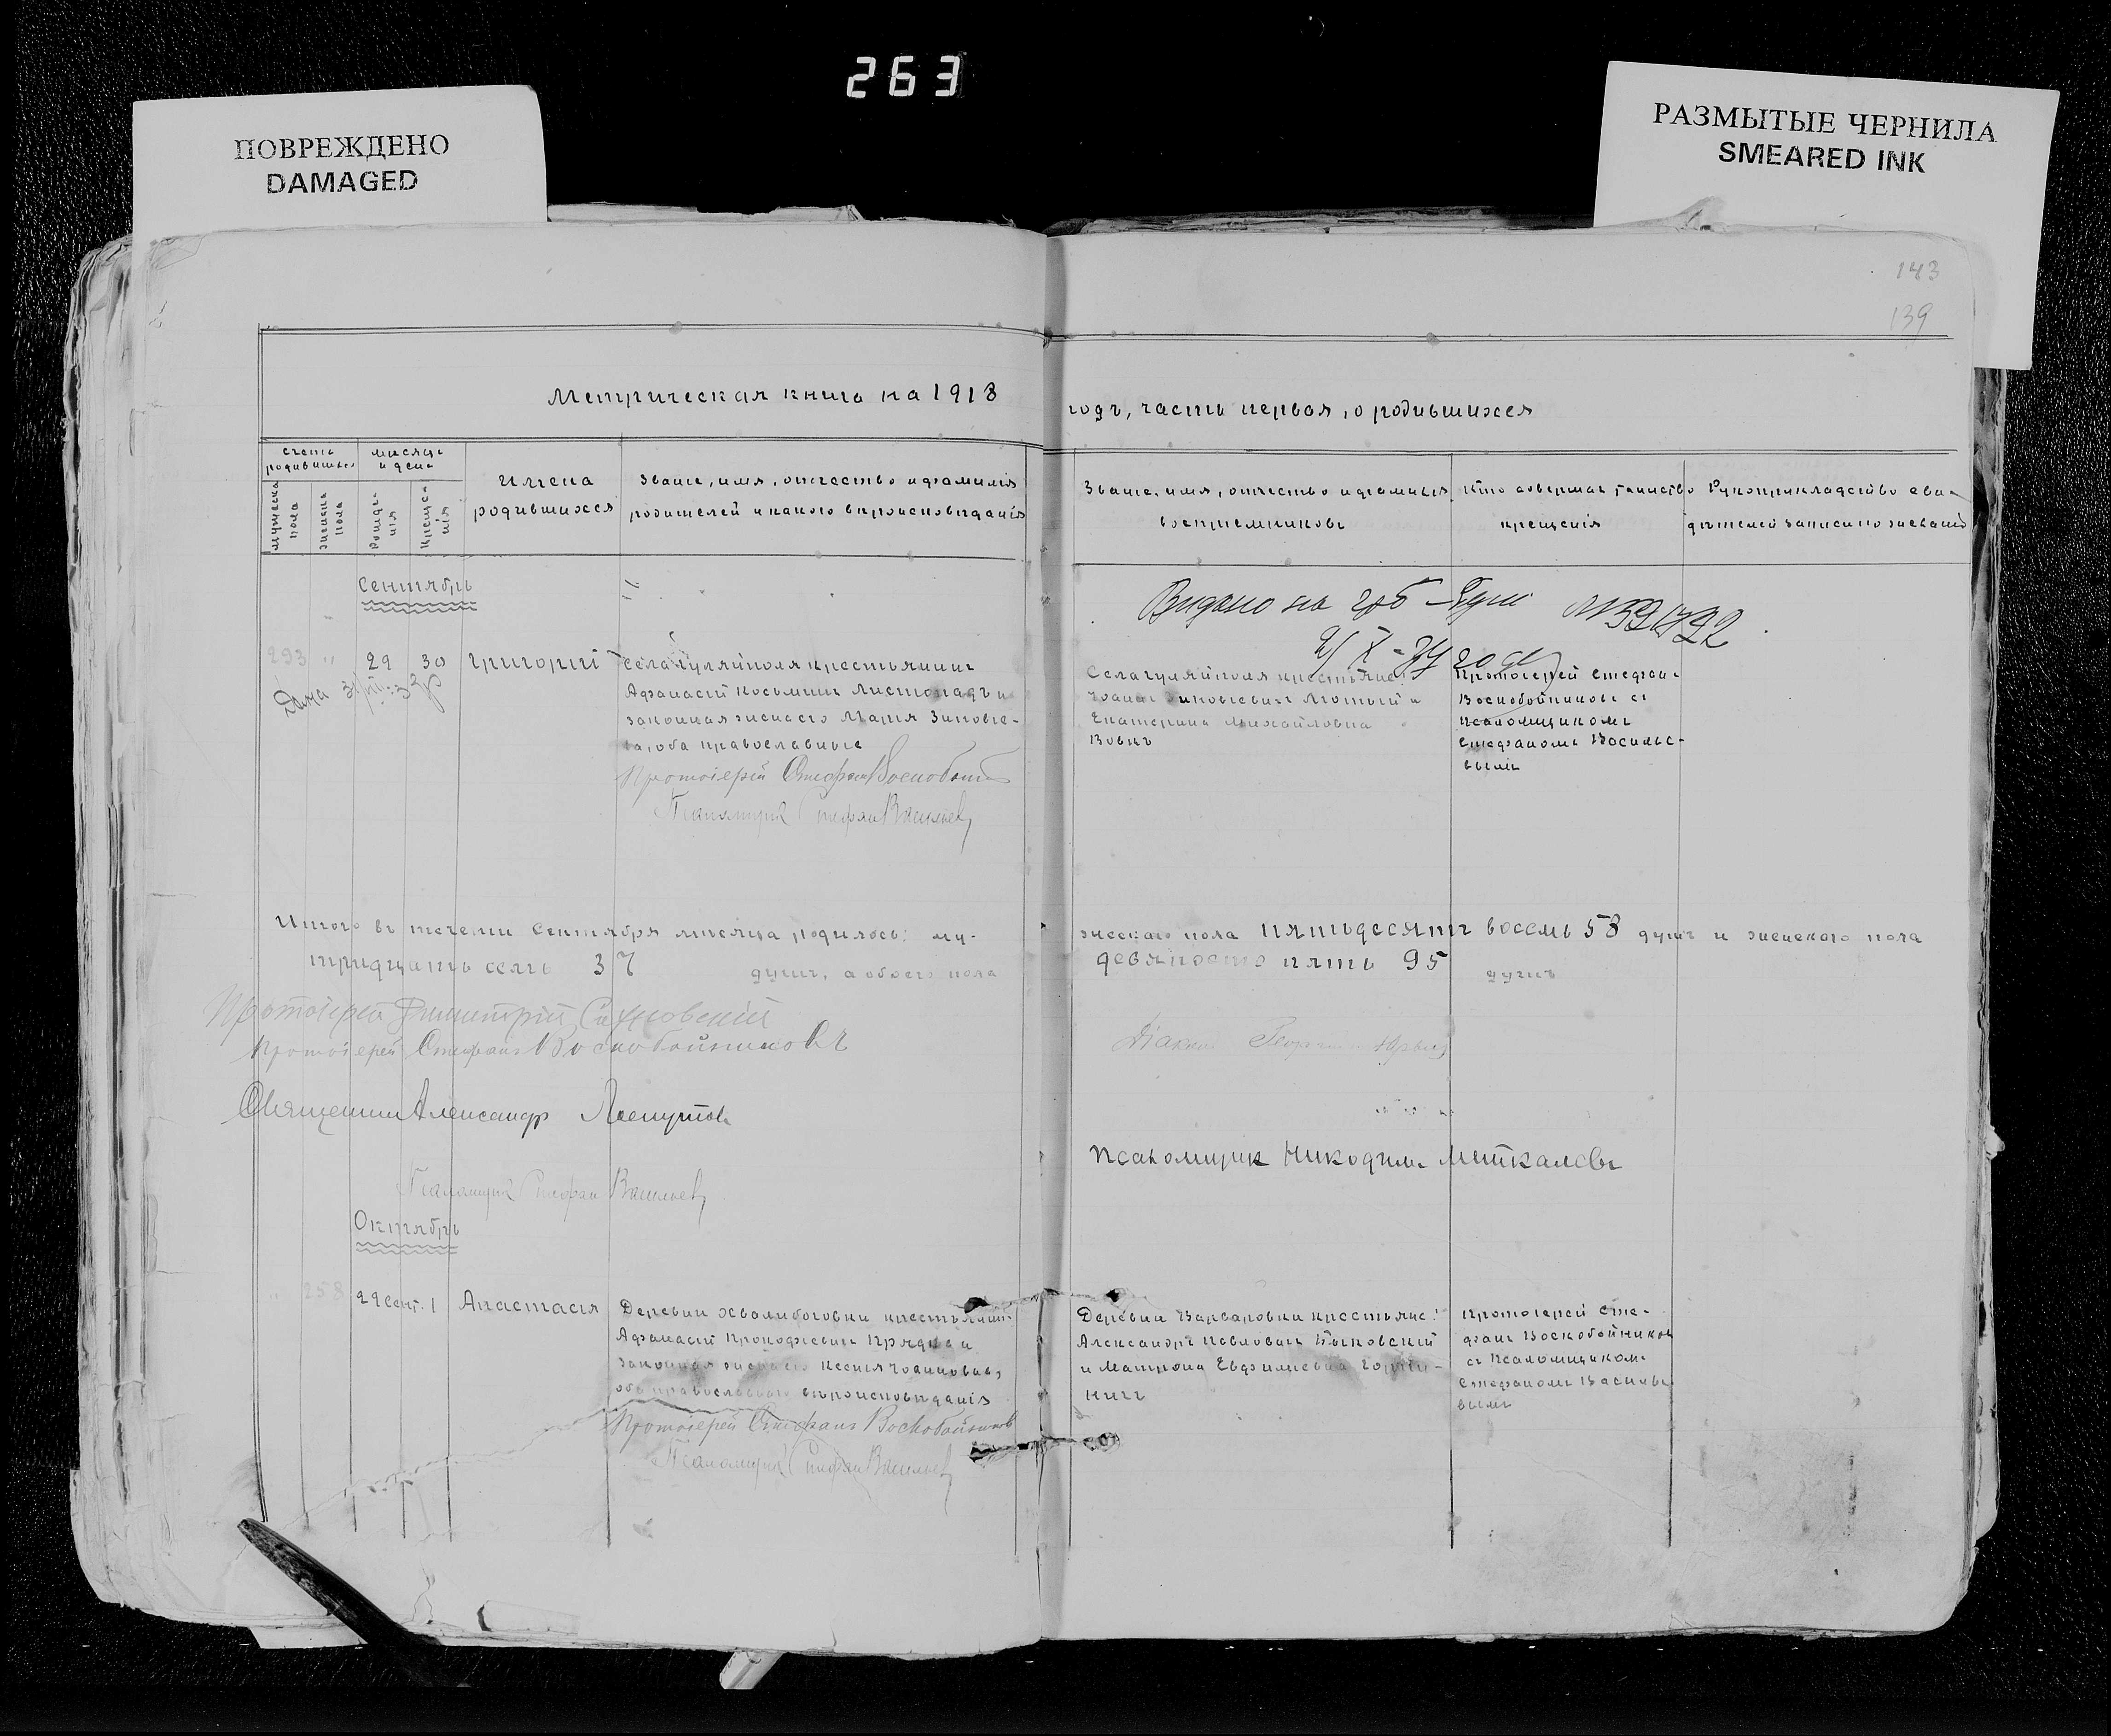 263
ПОВРЕЖДЕНО
DAMAGED
РАЗМЫТЫЕ ЧЕРНИЛА
SMEARED INK
143
139
Метрическая книга на 1918
годъ, часть первая, о родившихся
счетъ родившихся
мужеска пола
женска пола
мѣсяцъ и день
рожденія
крещенія
Имена
родившихся
Званіе, имя, отчество и фамилія
родителей и какого вѣроисповѣданія
Званіе, имя, отчество и фамилія
воспріемниковъ
Кто совершалъ таинство
крещенія
Рукоприкладство сви-
дѣтелей записи по желанію
Сентябрь
Видано на
293 " 29 30 Григорій
Села Гуляйполя крестьянинъ
Афанасій Косьминъ Листопадъ и
законная жена его Марія Зиновіе-
ва, оба православные
Протоіерей Стефанъ Воскобойниковъ
Псаломщикъ Стефанъ Васильевъ
Села Гуляйполя крестьяне:
Іоаннъ Зиновіевичъ Лютый и
Екатерина Михайловна
Вовкъ
Протоіерей Стефанъ
Воскобойниковъ съ
псаломщикомъ
Стефаномъ Василье-
вымъ
Итого въ теченіи Сентября мѣсяца родилось: му-
жескаго пола пятьдесятъ восемь 58 душъ и женскаго пола
тридцать семь 37 душъ, а обоего пола
девяносто пять 95 душъ
Протоіерей Димитрій Сахновскій
Протоіерей Стефанъ Воскобойниковъ
Діаконъ Георгій
Священникъ Александр
Псаломщик Никодимъ Миткалевъ
Псаломщикъ Стефан Васильевъ
Октябрь
" 258 29 сент. 1 Анастасія
Деревни Хвалибоговки крестьянинъ
Афанасій Прокофіевичъ Прядка и
законная жена его Ксенія Іоанновна,
оба православнаго вѣроисповѣданія
Протоіерей Стефанъ Воскобойниковъ
Псаломщикъ Стефан Васильевъ
Деревни Варваровки крестьяне:
Александръ Павловичъ Быковскій
и Матрона Евфиміевна
Протоіерей Сте-
фанъ Воскобойниковъ
съ псаломщикомъ
Стефаномъ Василье-
вымъ